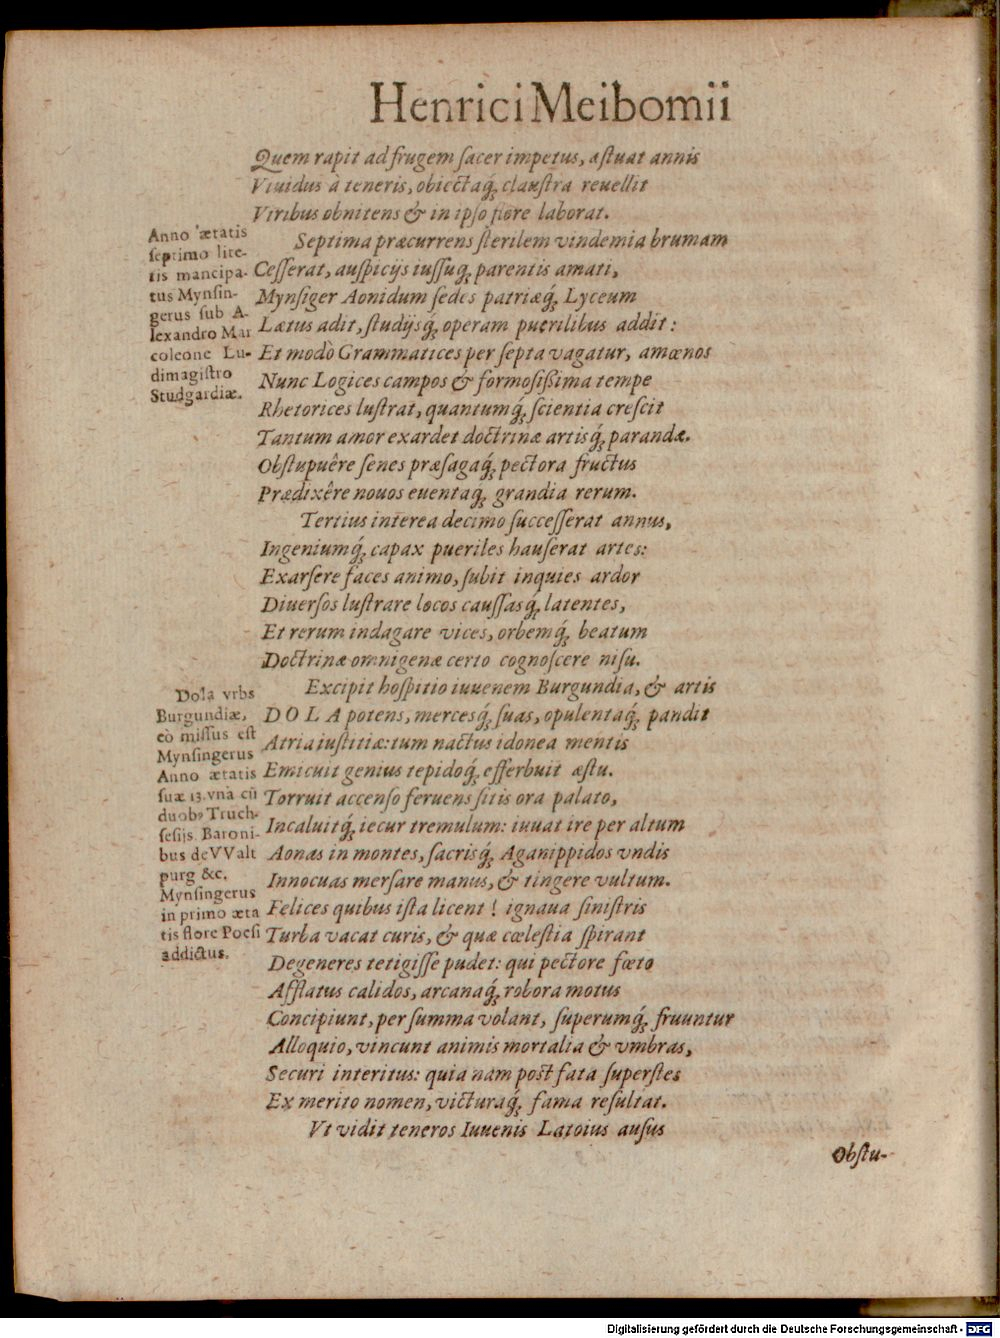 Henrici Meibomii
Quem rapit ad frugem ſacer impetus, æſtuat annis
Viuidus à teneris, obiectaq́; clauſtra reuellit
Viribus obnitens & in ipſo flore laborat.
Septima præcurrens ſterilem vindemia brumam
Ceſſerat, auſpicijs iuſſuq́; parentis amati,
Mynſiger Aonidum ſedes patriæq́; Lyceum
Lætus adit, ſtudijsq́; operam puerilibus addit:
Et modò Grammatices per ſepta vagatur, amœnos
Nunc Logices campos & formoſiſſima tempe
Rhetorices luſtrat, quantumq́; ſcientia creſcit
Tantum amor exardet doctrinæ artisq́; parandæ.
Obſtupuêre ſenes præſagaq́; pectora fructus
Prædixêre nouos euentaq́; grandia rerum.
Anno ætatis
ſeptimo lite-
tis mancipa-
tus Mynſin-
gerus ſub A-
lexandro Mar
coleone Lu-
dimagiſtro
Studgardiæ.
Tertius interea decimo ſucceſſerat annus,
Ingeniumq́; capax pueriles hauſerat artes:
Exarſere faces animo, ſubit inquies ardor
Diuerſos luſtrare locos cauſſasq́; latentes,
Et rerum indagare vices, orbemq́; beatum
Doctrinæ omnigenæ certo cognoſcere niſu.
Excipit hoſpitio iuuenem Burgundia, & artis
DOLA potens, mercesq́; ſuas, opulentaq́; pandit
Atria iuſtitiæ: tum nactus idonea mentis
Emicuit genius tepidoq́; efferbuit æſtu.
Torruit accenſo feruens ſitis ora palato,
Incaluitq́; iecur tremulum: iuuat ire per altum
Aonas in montes, ſacrisq́; Aganippidos vndis
Innocuas merſare manus, & tingere vultum.
Felices quibus iſta licent! ignaua ſiniſtris
Turba vacat curis, & quæ cœleſtia ſpirant
Degeneres tetigiſſe pudet: qui pectore fœto
Afflatus calidos, arcanaq́; robora motus
Concipiunt, per ſumma volant, ſuperumq́; fruuntur
Alloquio, vincunt animis mortalia & vmbras,
Securi interitus: quia nam poſt fata ſuperſtes
Ex merito nomen, victuraq́; fama reſultat.
Vt vidit teneros Iuuenis Latoius auſus
Dola vrbs
Burgundiæ,
eò miſſus eſt
Mynſingerus
Anno ætatis
ſuæ 13. vnà cū
duobꝰ Truch-
ſeſijs Baroni-
bus de VValt
purg &c.
Mynſingerus
in primo æta
tis flore Poeſi
addictus.
Obſtu-
Digitalisierung gefördert durch die Deutsche Forschungsgemeinschaft - DFG